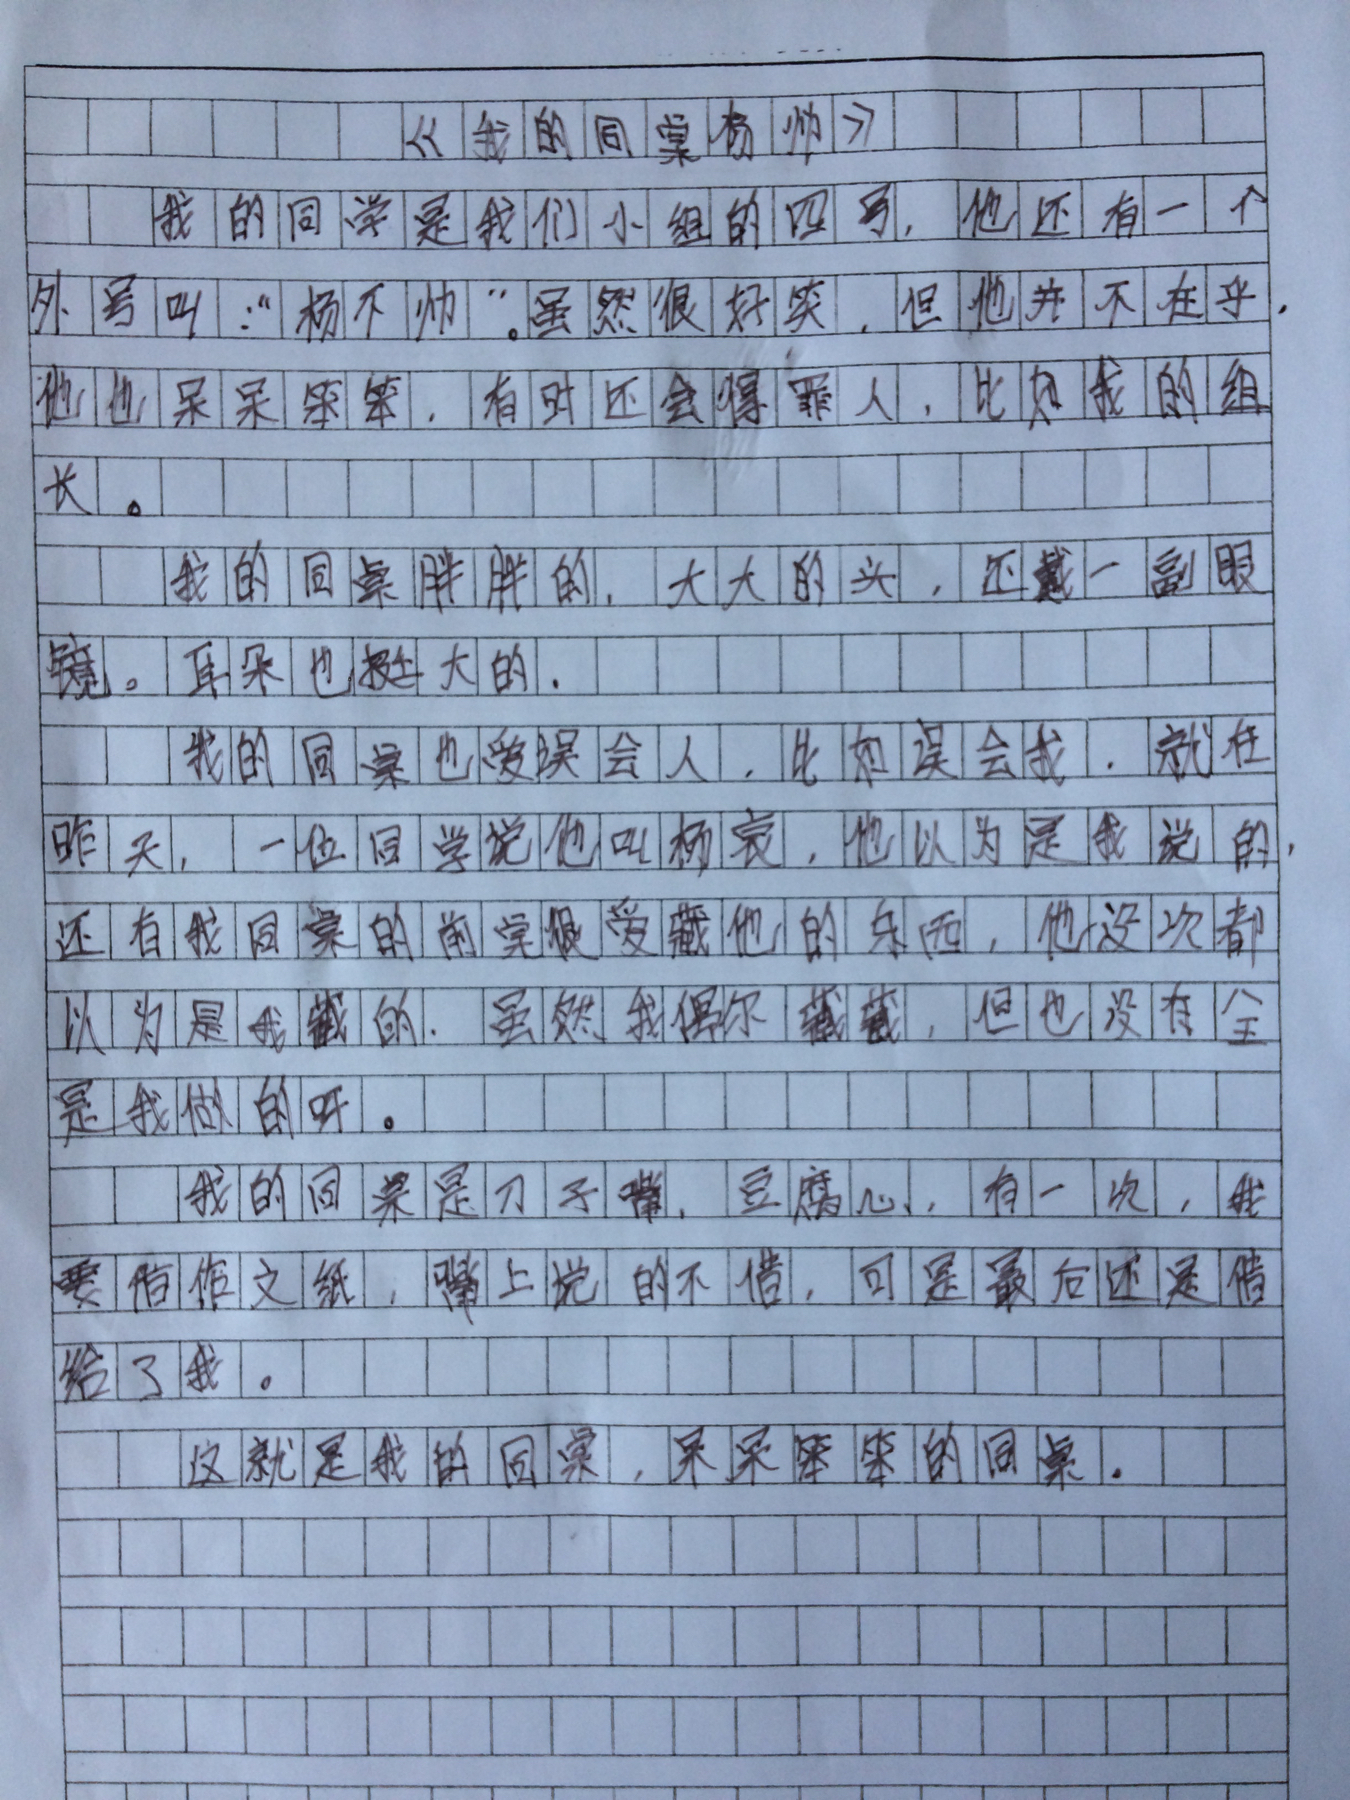 《我的同桌杨帅》
我的同学是我们小组的四号，他还有一个
外号叫：“杨不帅”。虽然很好笑，但他并不在乎，
他也呆呆笨笨，有时还会得罪人，比如我的组
长。
我的同桌胖胖的，大大的头，还戴一副眼
镜。耳朵也挺大的．
我的同桌也爱误会人，比如误会我．就在
昨天，一位同学说他叫杨衰，他以为是我说的，
还有我同桌的前桌很爱藏他的东西，他没次都
以为是我藏的．虽然我偶尔藏藏，但也没有全
是我做的呀。
我的同桌是刀子嘴，豆腐心，有一次，我
要借作文纸，嘴上说的不借，可是最后还是借
给了我。
这就是我的同桌，呆呆笨笨的同桌．